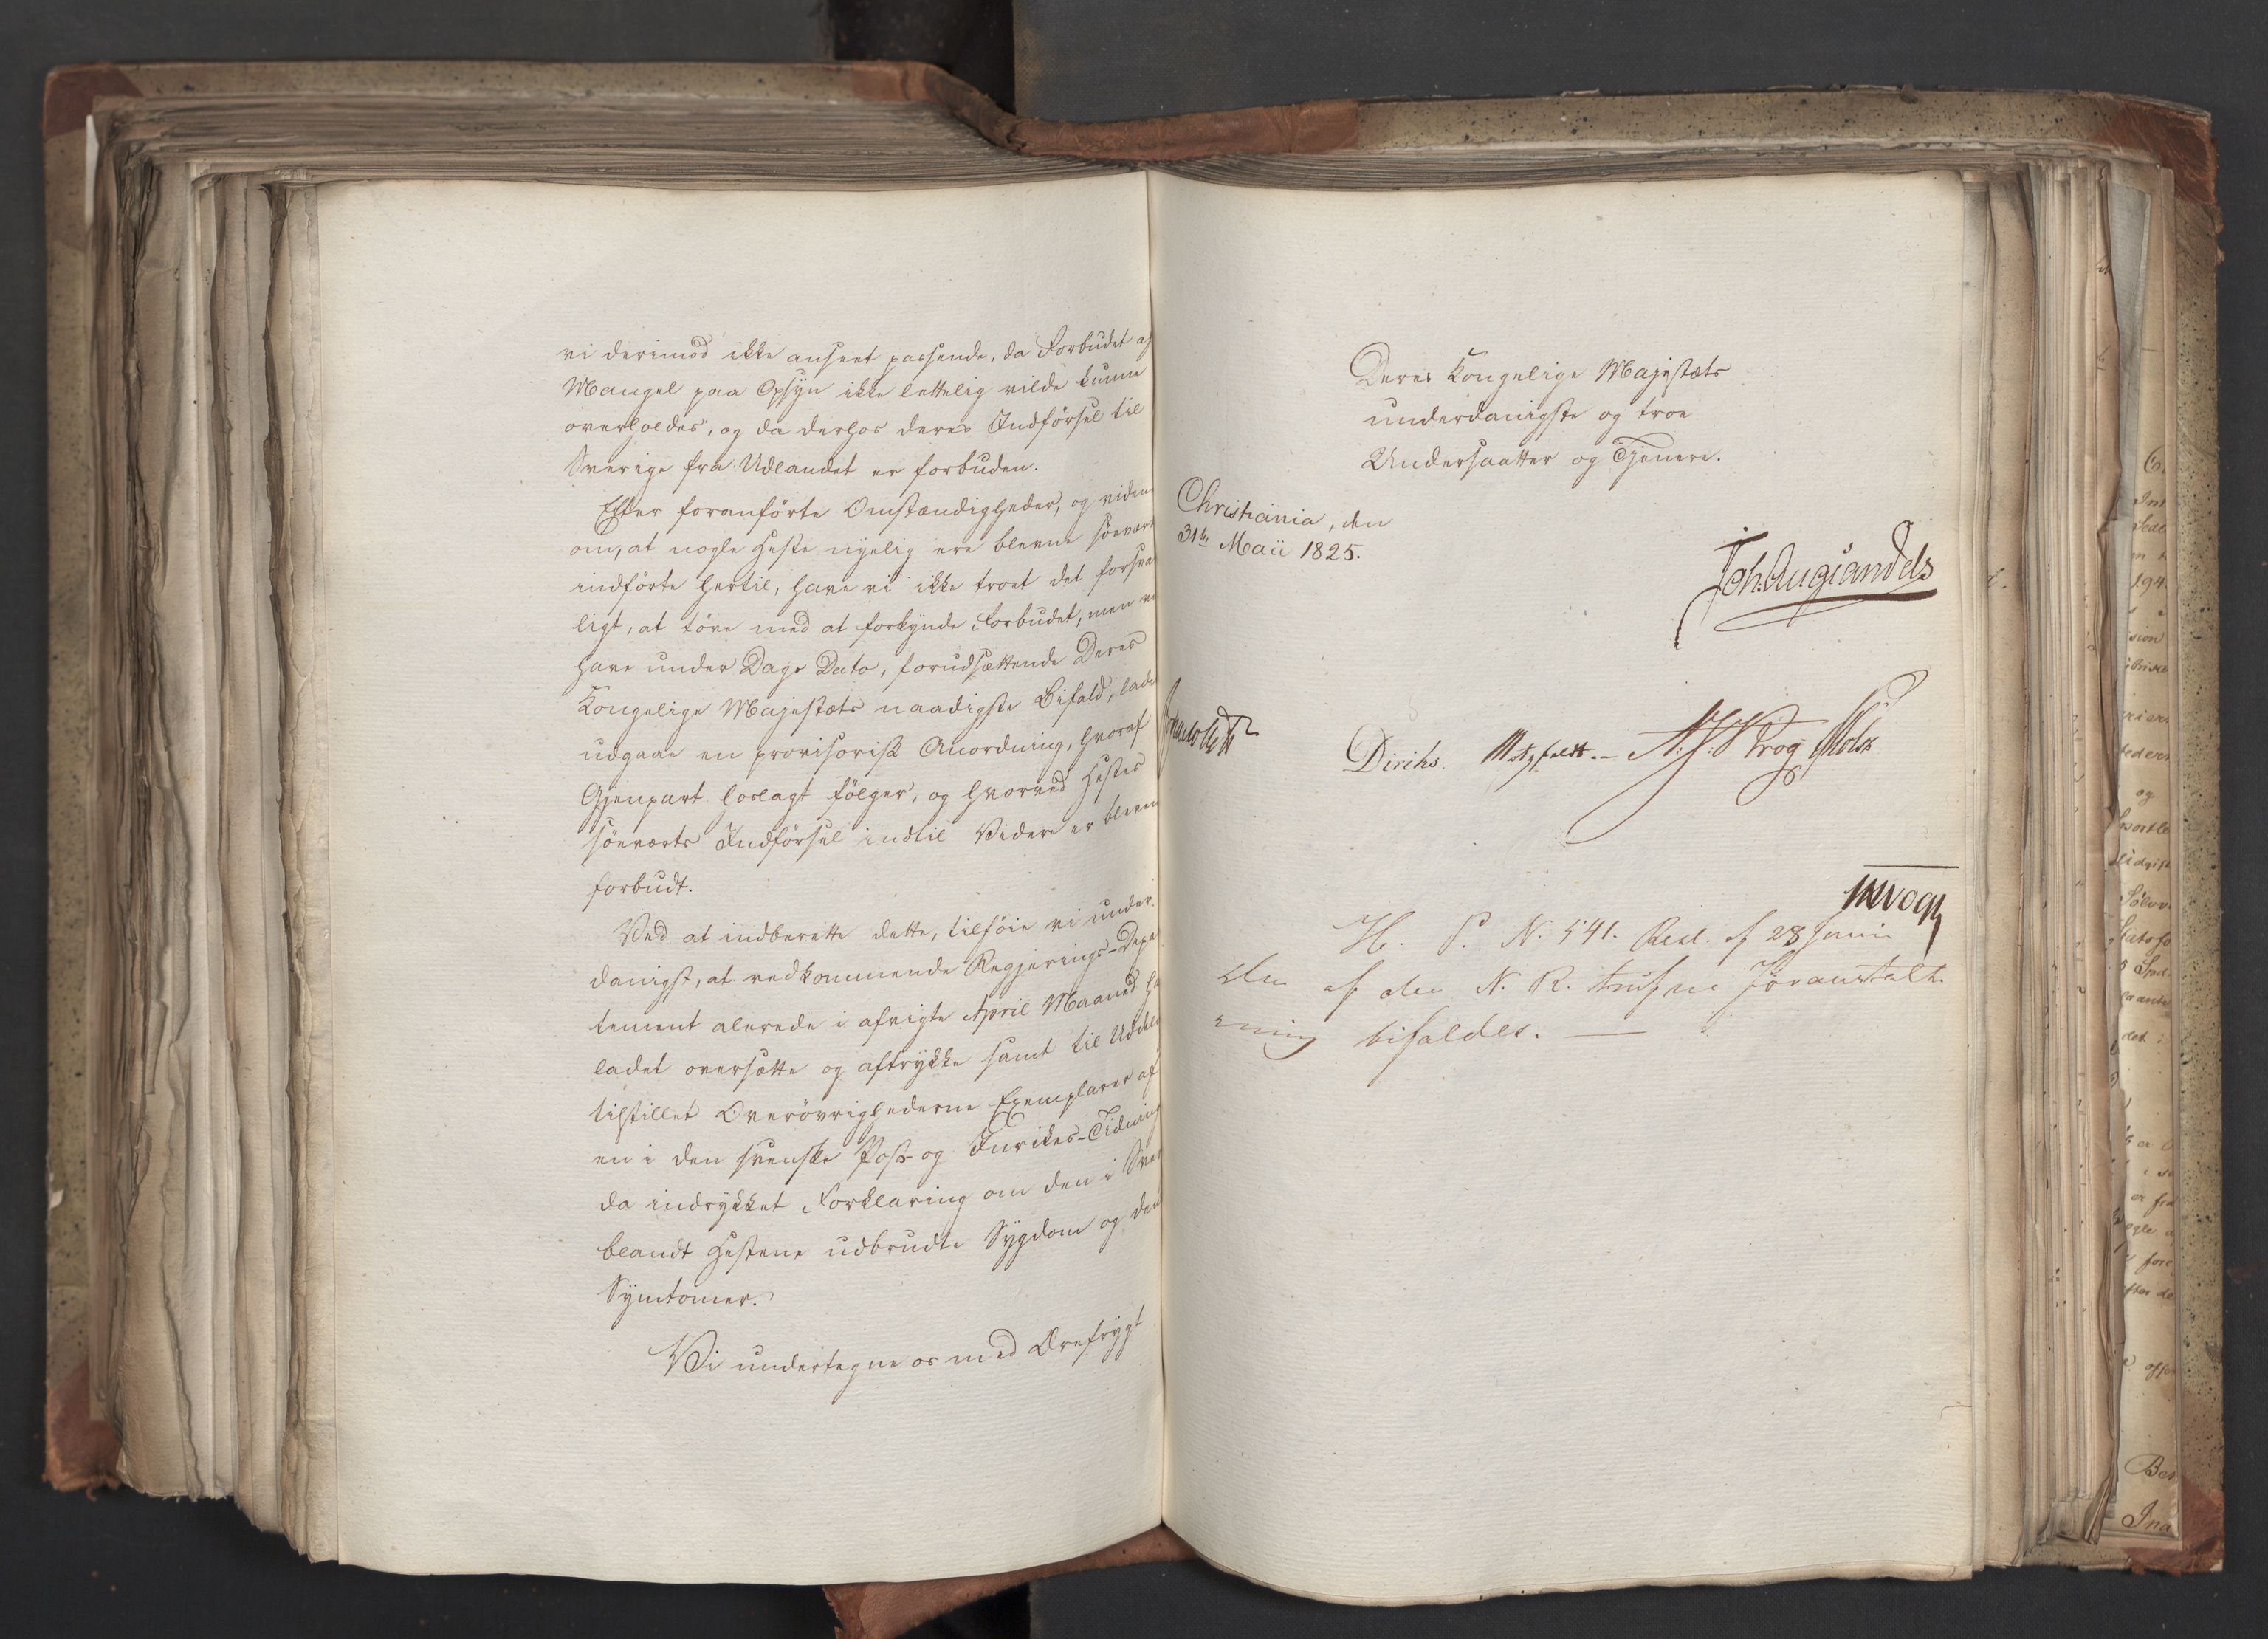 vi derimod ikke anseet passende, da Forbudet af
Mangel paa Opsyn ikke lettelig vilde kunne
overholdes, og da derhos deres Indførsel til
Sverige fra Udlandet er forbuden.
Efter foranførte Omstændigheder, og viden
om, at nogle Heste nyelig ere blevne søevært
indførte hertil, have vi ikke troet det forsva
ligt, at tøve med at forkynde Forbudet, men vi
have under Dags Dato, forudsættende Deres
Kongelige Majestæts naadigste Bifald, lade
udgaae en provisorisk Anordning, hvoraf
Gjenpart hoslagt følger, og hvorved Hestes
søeværts Indførsel indtil Videre er bleven
forbudt.
Ved at indberette dette, tilføie vi under-
danigst, at vedkommende Regjerings-Depa
tement allerede i afvigte April Maaned ha
ladet oversætte og aftrykke samt til Uddele
tilstillet Overøvrighederne Exemplarer af
en i den svenske Post- og Inrikes-Tidning
da indrykket Forklaring om den i Sve
blandt Hestene udbrudte Sygdom og den
Symtomer.
Vi undertegne os med Ærefrygt
Deres Kongelige Majestæts
underdanigste og troe
Undersaatter og Tjenere.
Christiania, den
31te Maii 1825.
Joh. Aug. Sandels
Diriks. Motzfeldt.- Krog Holst
JHVogt
H. P. N. 541. Resl. af 28 Junii
den af den N. R. trufne Foranstalt-
ning bifaldes.